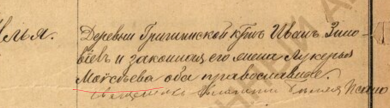 лья.
Деревни Григинской кр‍нъ Иванъ Зино-
вiевъ и законная его жена Лукерья
Моѵсѣева оба православные.